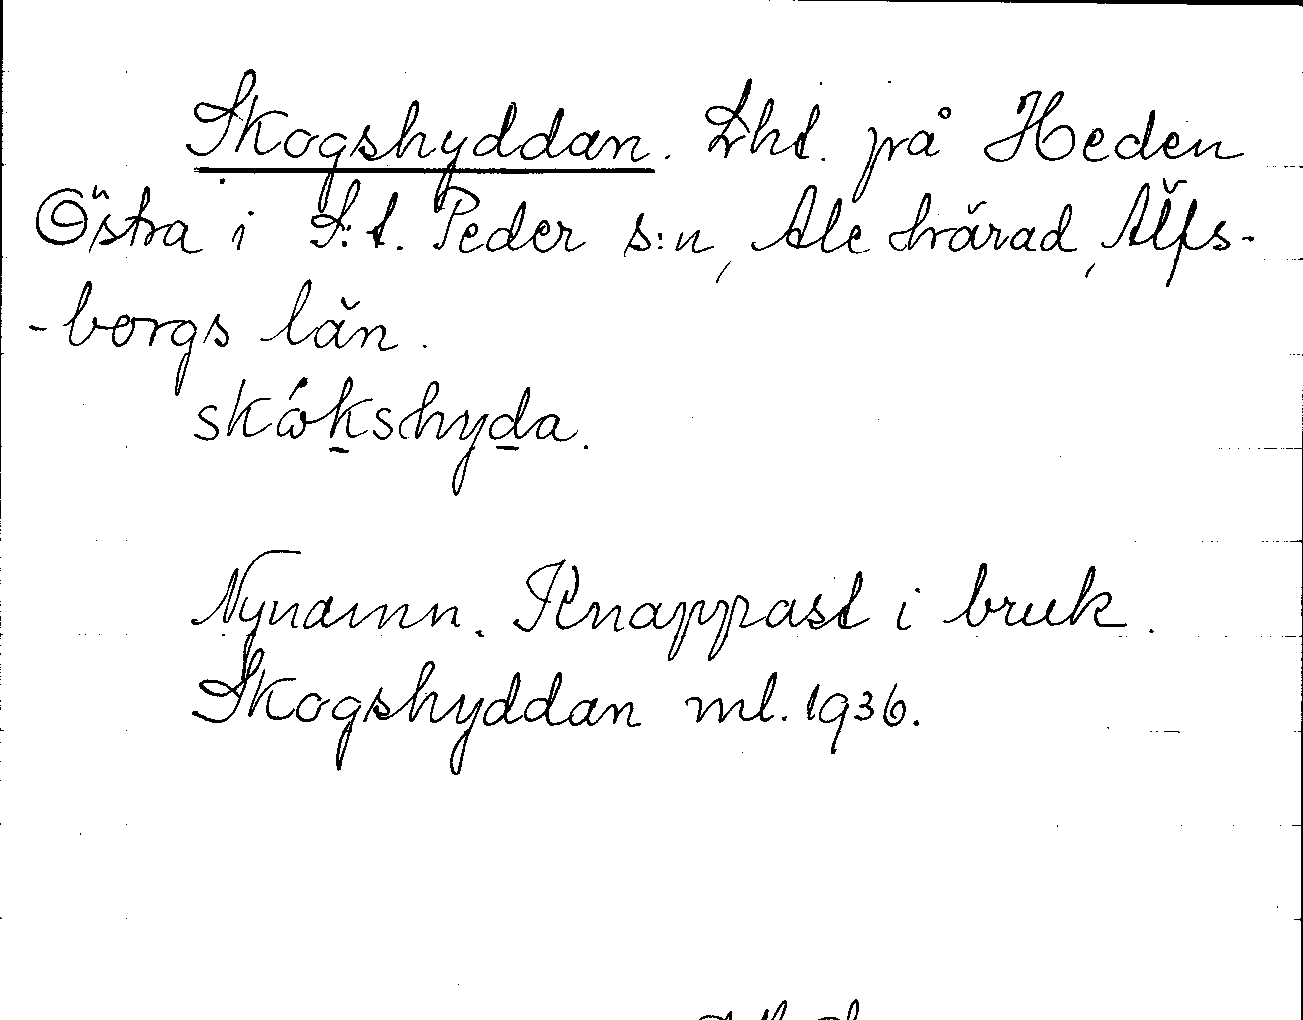 Skogshyddan. Lht. på Heden
Östra i S:t. Peder s:n, Ale härad, Älfs-
-borgs län.
skǿkshyda.
Nynamn. Knappast i bruk.
Skogshyddan ml. 1936.